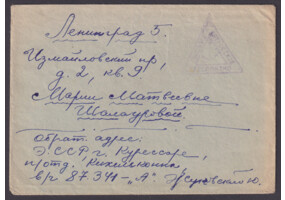 Ленинград 5.
Измайловский пр,
д. 2, кв. 9
Марии Матвеевне
Шалауровой
Обрат. адрес
ЭССР г. Курессаре,
п/отд. Кихельконна
в/ч 87341-"А"